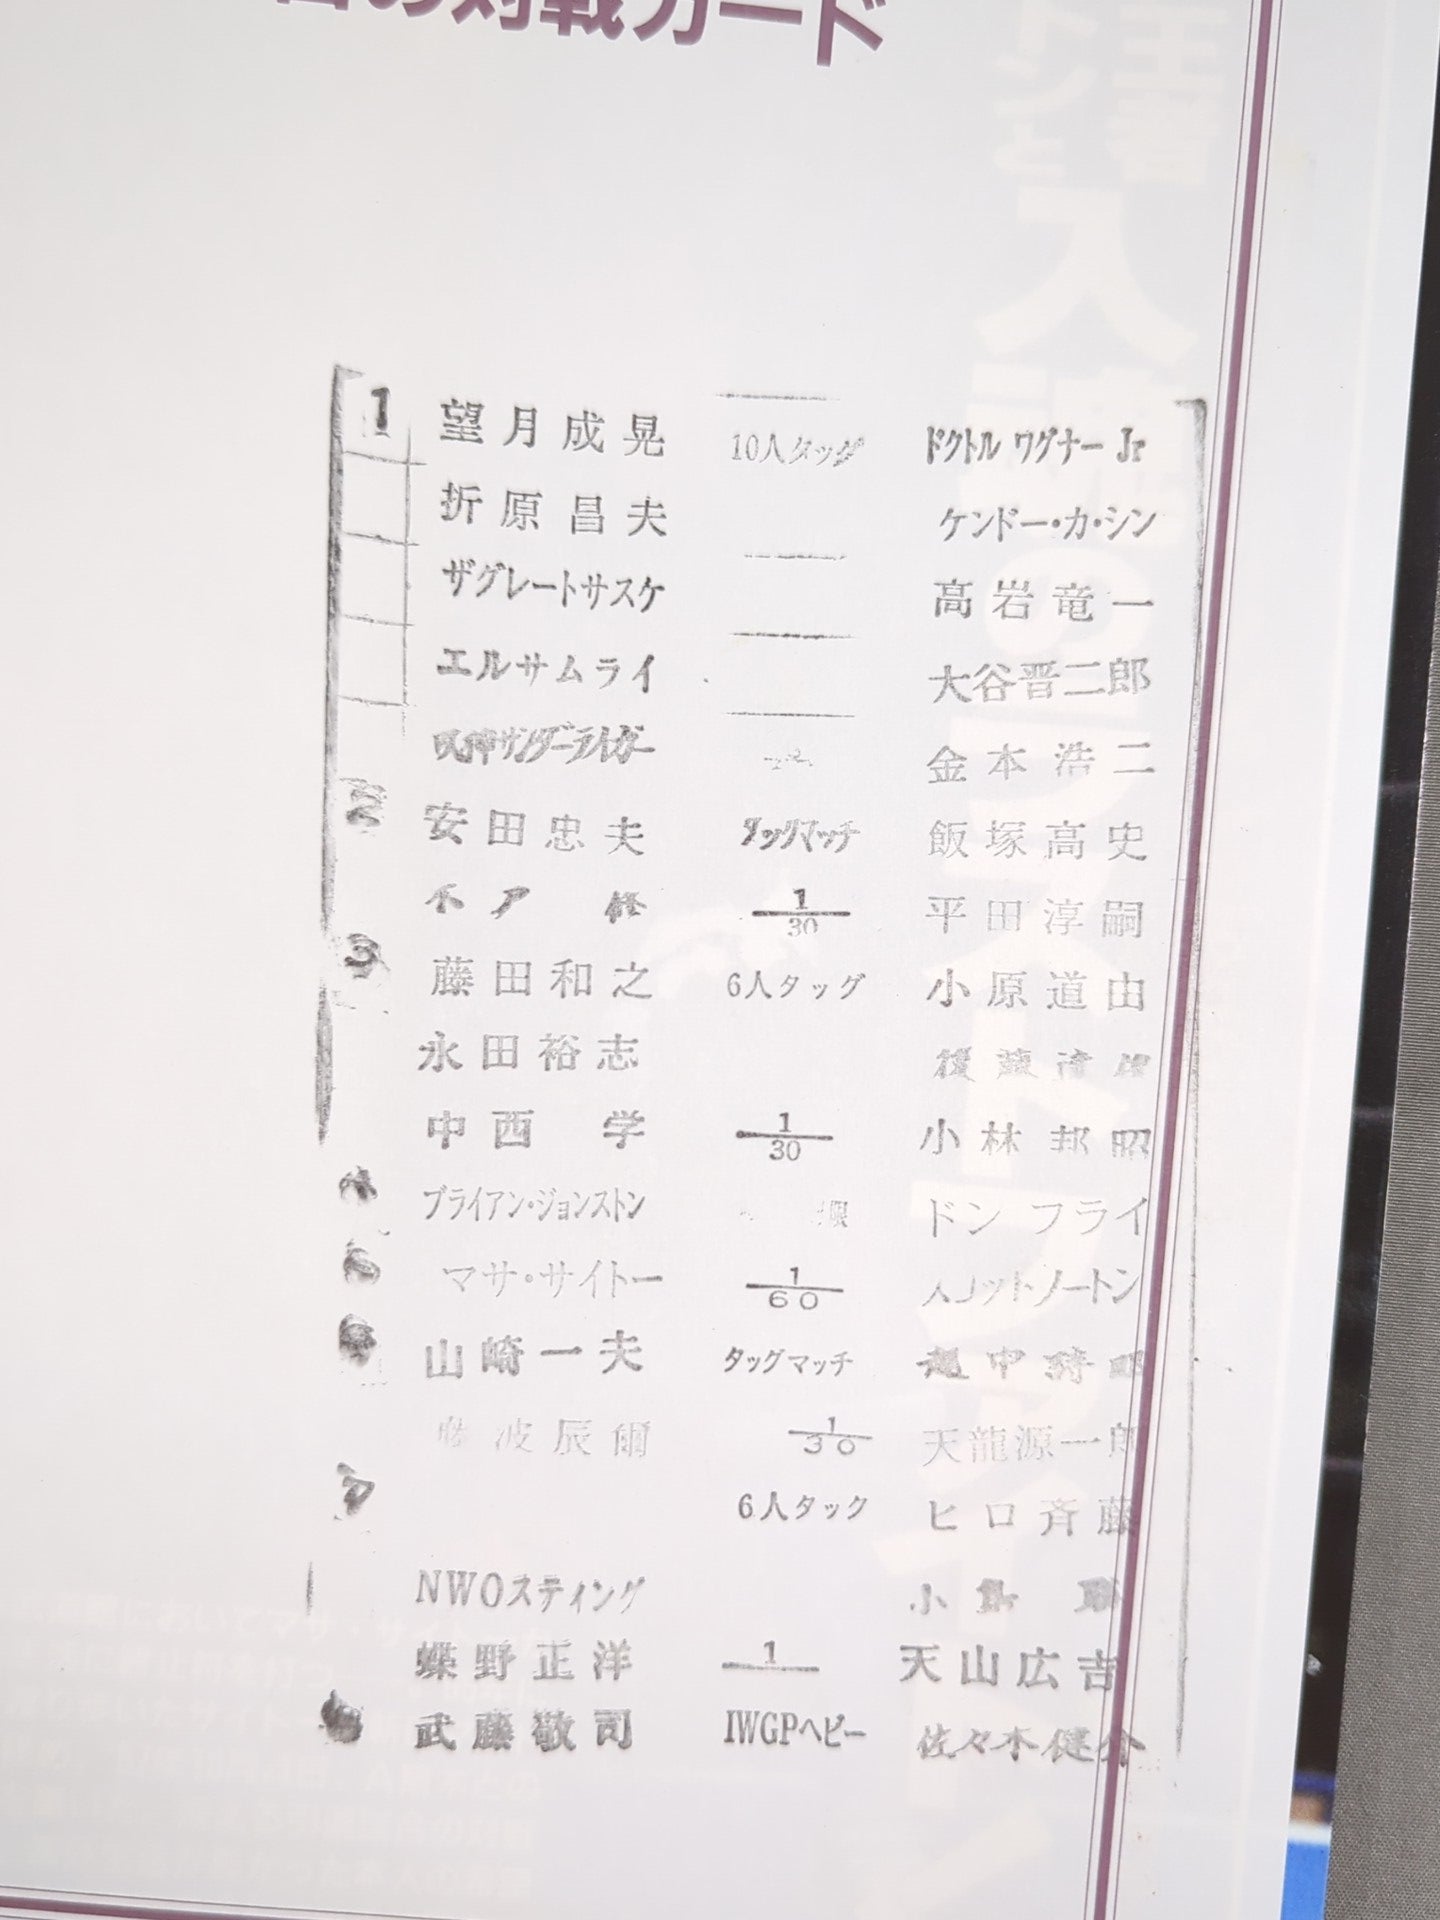 の対戦カード
1 望月成晃 10人タッグ ドクトル ワグナー Jr
折原昌夫 ケンドー・カ・シン
ザグレートサスケ 高岩竜一
エルサムライ 大谷晋二郎
サンダーライガー 金本浩二
2 安田忠夫 タッグマッチ 飯塚高史
木戸 修 1/30 平田淳嗣
3 藤田和之 6人タッグ 小原道由
永田裕志
中西 学 1/30 小林邦昭
ブライアン・ジョンストン 限 ドン フライ
マサ・サイトー 1/60 ノートン
山崎一夫 タッグマッチ 越中詩郎
藤波辰爾 1/30 天龍源一郎
6人タック ヒロ斉藤
NWOスティング 小島 聡
蝶野正洋 1 天山広吉
武藤敬司 IWGPヘビー 佐々木健介